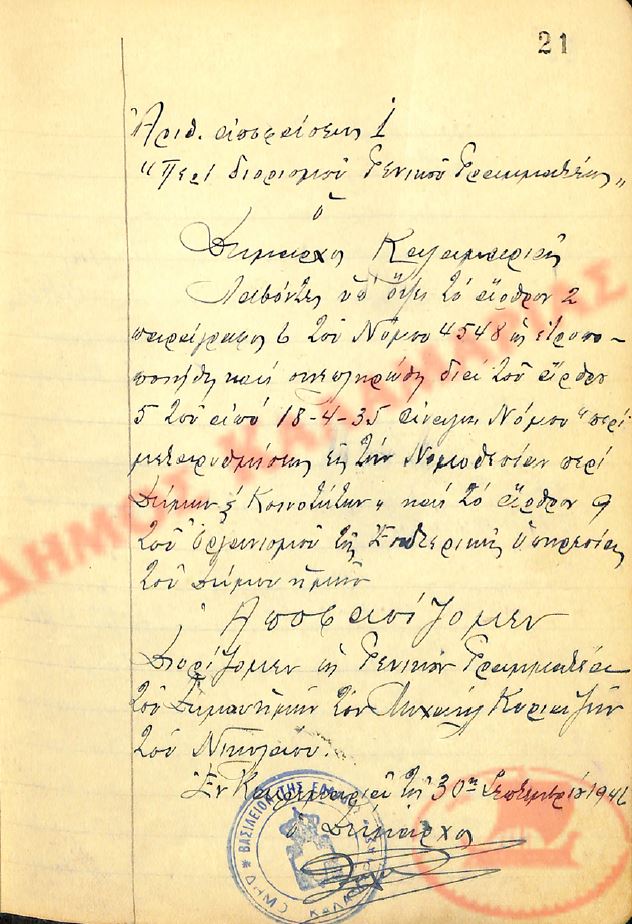 21
Ἀριθ. ἀποφάσεως 1
"Περί διορισμοῦ Γενικοῦ Γραμματέως"
ὁ
Δήμαρχος Καλαμαριᾶς
Λαβόντες ὑπ' ὄψει τό ἄρθρον 2
παράγραφος 6 τοῦ Νόμου 4548 ὡς ἐτροπο-
ποιήθη καί συνεπληρώθη διά τοῦ ἄρθρου
5 τοῦ ἀπό 18-4-35 ἀναγκ. Νόμου "περί
μεταρυθμίσεως εἰς τήν Νομοθεσίαν περί
Δήμων & Κοινοτήτων" καί τό ἄρθρον 9
τοῦ Ὀργανισμοῦ τῆς Ἐσωτερικῆς Ὑπηρεσίας
τοῦ Δήμου ἡμῶν
Ἀποφασίζομεν
Διορίζομεν ὡς Γενικόν Γραμματέα
τοῦ Δήμου ἡμῶν τόν Μιχαήλ Κυριαζήν
τοῦ Νικολάου.
Ἐν Καλαμαριᾷ τῇ 30ῃ Σεπτεμβρίου 1946
ὁ Δήμαρχος
ΒΑΣΙΛΕΙΟΝ ΤΗΣ ΕΛΛΑΔΟΣ
ΔΗΜΟΣ ΚΑΛΑΜΑΡΙΑΣ